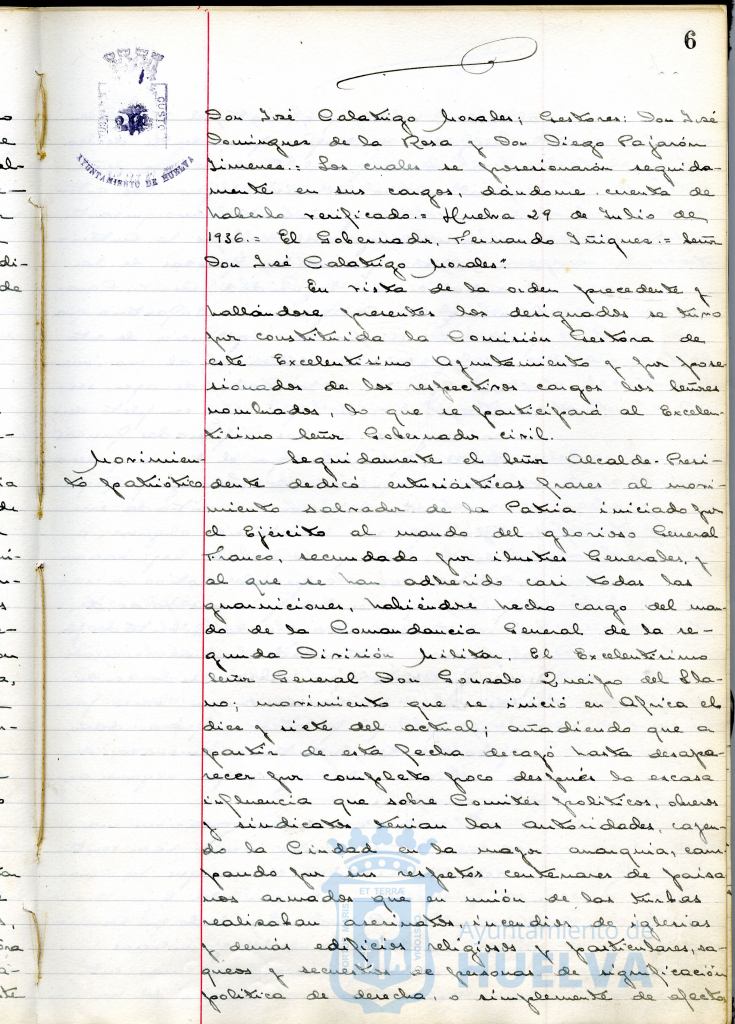 6
AYUNTAMIENTO DE HUELVA
Don José Calatrigo Morales; Gestores: Don José
Dominguez de la Rosa y Don Diego Pajarón
Jimenez.= Los cuales se posesionarón seguida-
mente en sus cargos, dándome cuenta de
haberlo verificado.= Huelva 29 de Julio de
1936.= El Gobernador, Fernando Iñiguez.= Señor
Don José Calatrigo Morales".
En vista de la orden precedente y
hallándose presentes los designados se tuvo
por constituida la Comisión Gestora de
este Excelentisimo Ayuntamiento y por pose-
sionados de los respectivos cargos los Señores
nombrados, lo que se participará al Excelen-
tisimo Señor Gobernador civil.
Movimien-
to patriótico
Seguidamente el Señor Alcalde-Presi-
dente dedicó entusiásticas frases al movi-
miento salvador de la Patria iniciado por
el Ejército al mando del glorioso General
Franco, secundado por ilustres Generales, y
al que se han adherido casi todas las
guarniciones, habiéndose hecho cargo del man-
do de la Comandancia General de la se-
gunda División Militar, El Excelentisimo
Señor General Don Gonzalo Queipo del Lla-
no; movimiento que se inició en Africa el
diez y siete del actual; añadiendo que a
partir de esta fecha decayó hasta desapa-
recer por completo poco después la escasa
influencia que sobre Comités politicos, obreros
y sindicatos tenian las autoridades, cayen-
do la Ciudad en la mayor anarquia, cam-
pando por sus respetos centenares de paisa-
nos armados que en unión de las turbas
realizaban asesinatos, incendios de iglesias
y demás edificios religiosos y particulares, sa-
queos y secuestros de personas de significación
politica de derecha, o simplemente de afectos
Ayuntamiento de
HUELVA